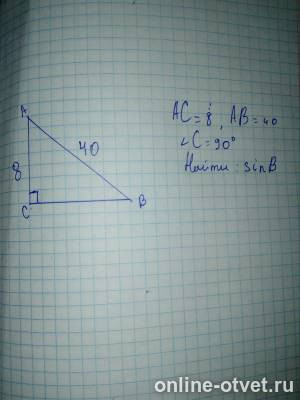 A
8
40
C
B
AC=8, AB=40
∠C=90°
Найти: sinB
online-otvet.ru